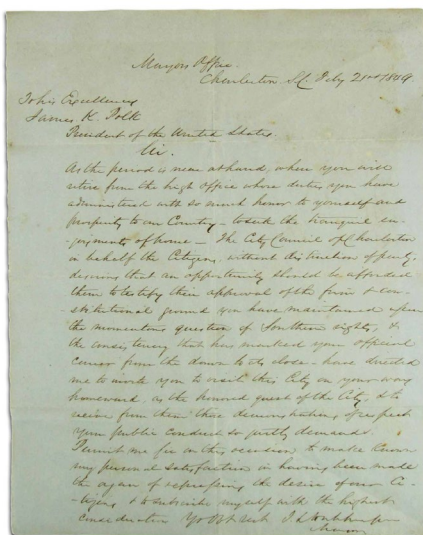 Mayors Office
Charleston SC Feby 21st 1849
To his Excellency
James K. Polk
President of the United States.
Sir.
As the period is near at hand, when you will
retire from the high office whose duties you have
administered with so much honor to yourself and
prosperity to our Country – to seek the tranquil en-
-joyments of home – The City Council of Charleston
in behalf of the Citizens, without distinction of party,
desiring that an opportunity should be afforded
them to testify their approval of the firm & con-
-stitutional ground you have maintained upon
the momentous question of Southern rights, &
the consistency that has marked your official
career from the dawn to its close – have directed
me to invite you to visit this City on your way
homeward, as the honored guest of the City, & to
receive from them those demonstrations of respect
your public conduct so justly demands.
Permit me Sir on this occasion to make known
my personal satisfaction in having been made
the organ of expressing the desire of our Ci-
-tizens & to subscribe myself with the highest
consideration Yr Obt Servt
Mayor